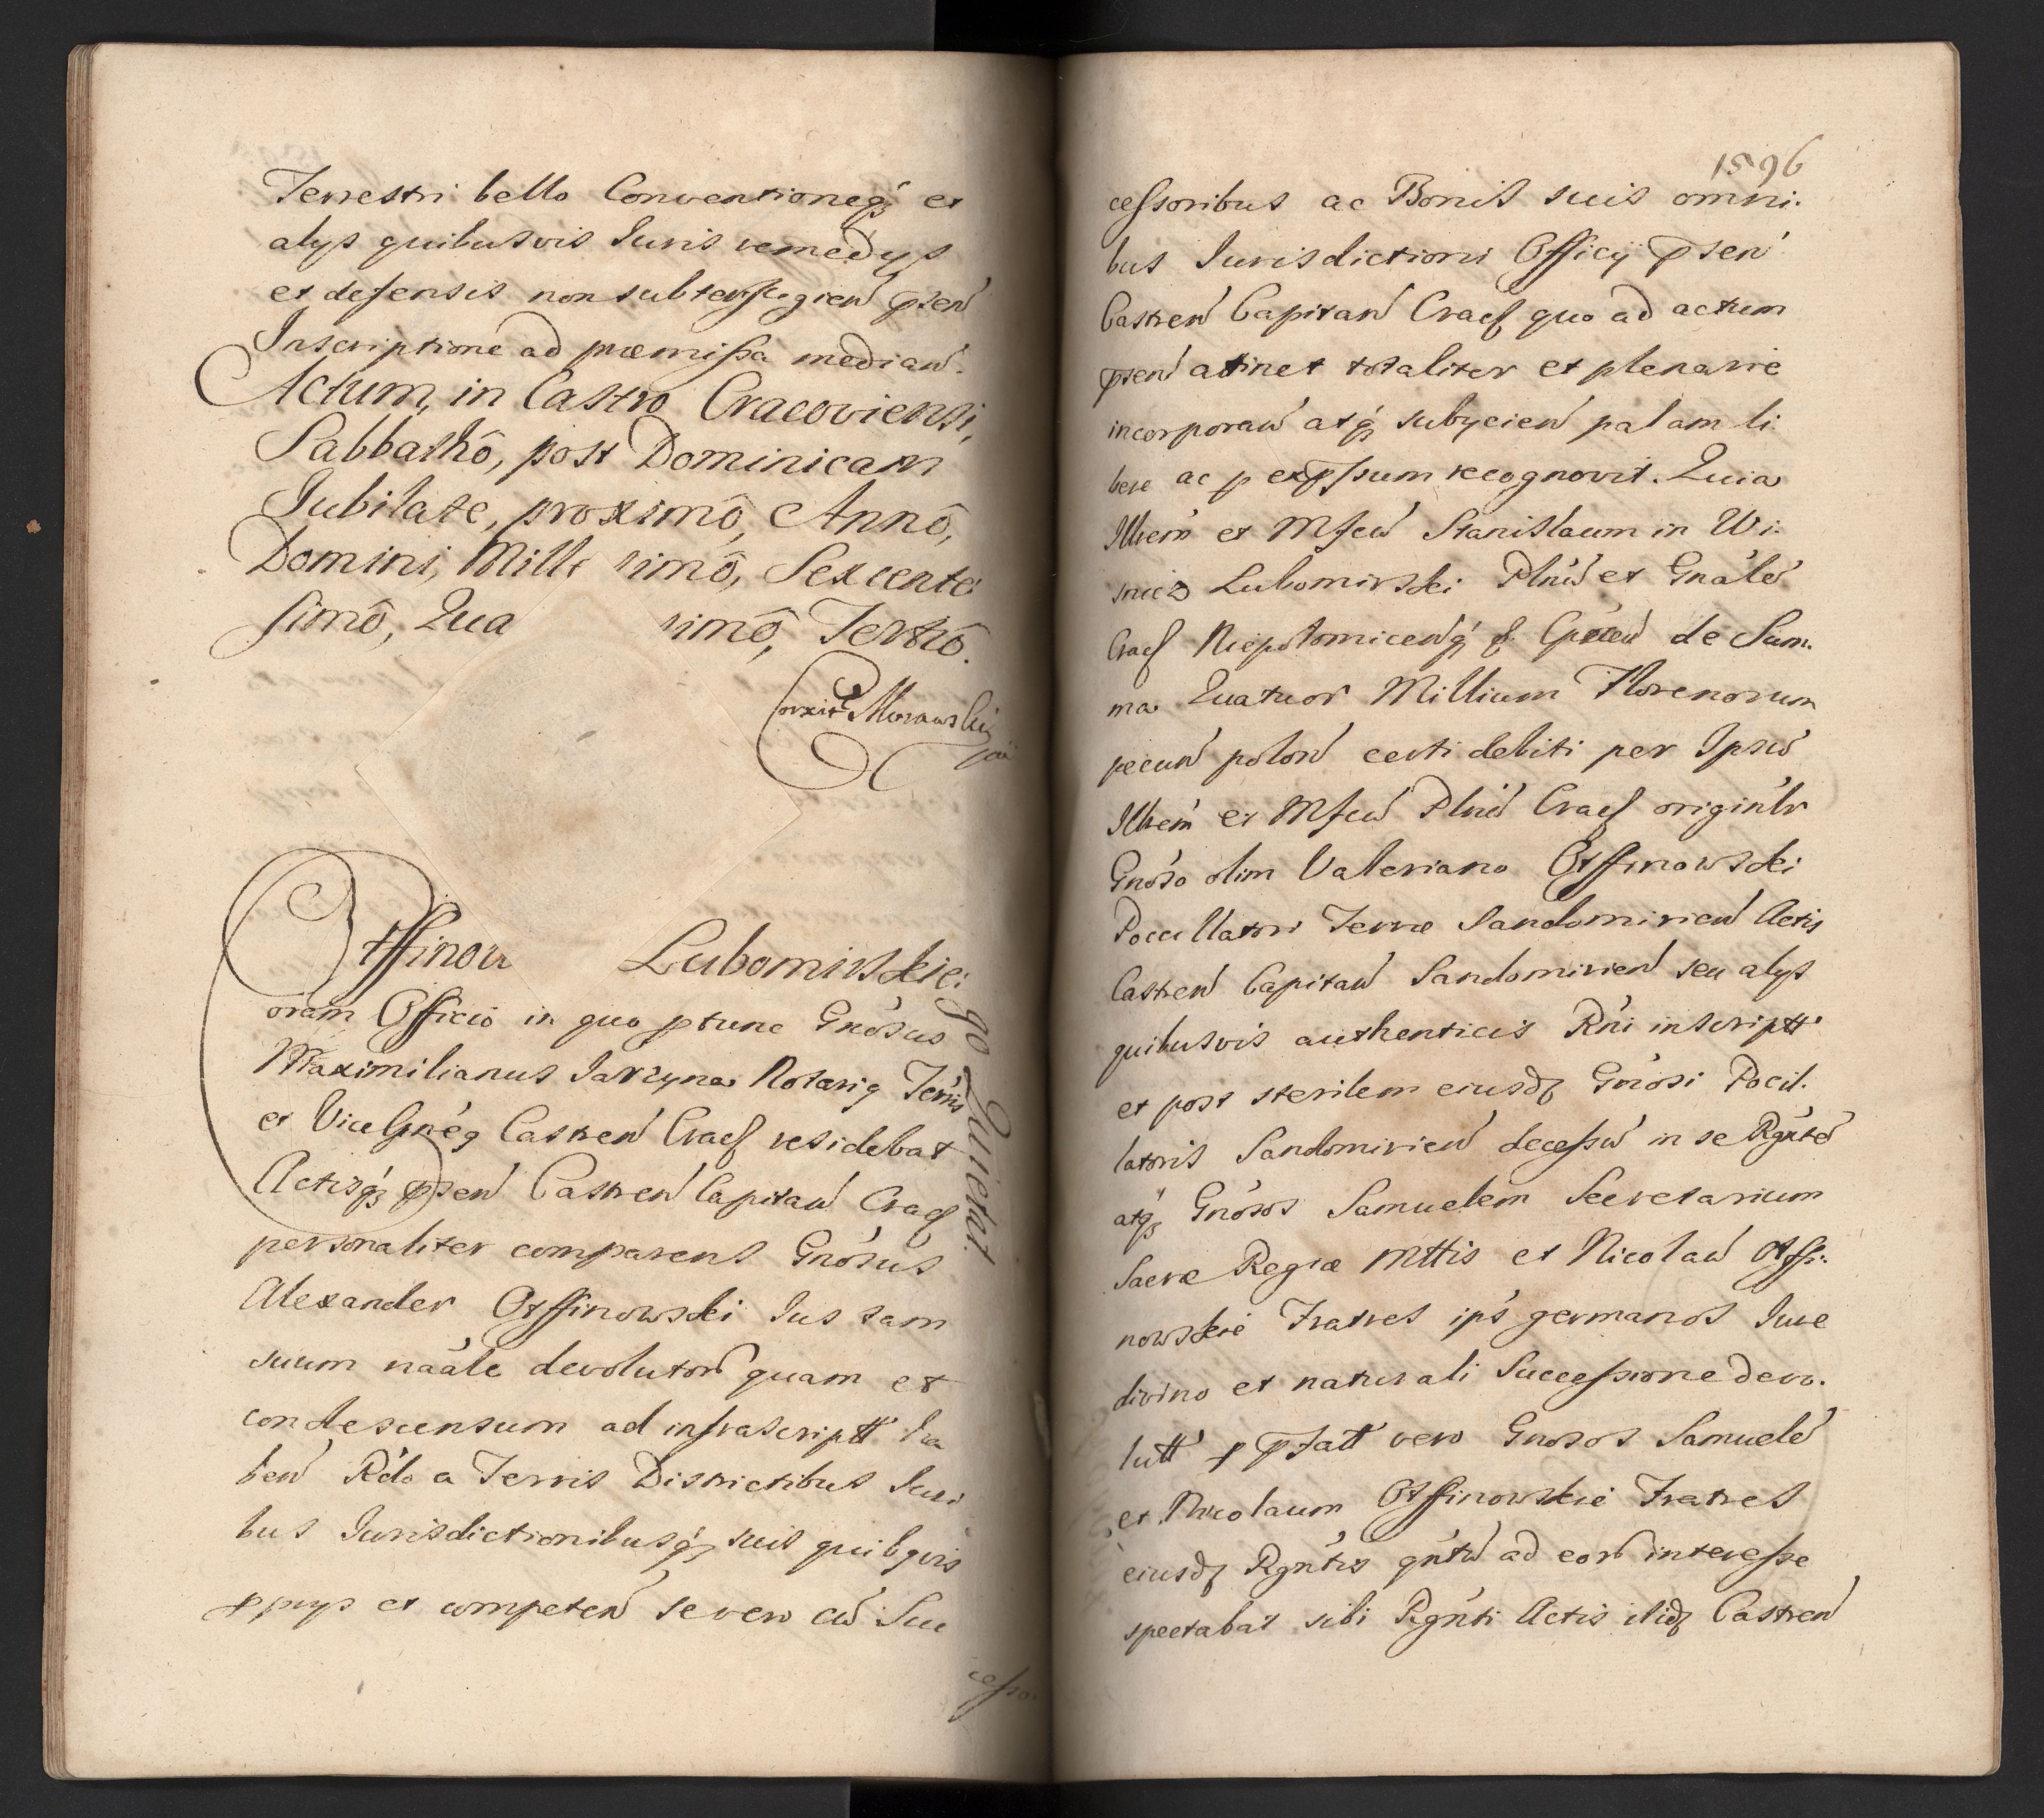 Terrestri bello Conventioneq₃ et
alys quibusvis Iuris remedys
et defensis non subterfugien p̄sen
Inscriptione ad præmissa median.
Actum, in Castro Cracoviensi,
Sabbathô, post Dominicam
Iubilate, proximô, Annô,
Domini, Mill simô, Sexcente
simô, Qua simô, Tertiô.
Corxit Morawski
Otffinow Lubomirskie:
go Quietat.
oram Officio in quo ptunc Gnósus
Maximilianus Jarzyna Notariq Terris
et Vice Castren Cracʃ residebat
Actisq́₃ p̄sen Castren Capitan Cracʃ
personaliter comparens Gnósus
Alexander Otffinowski Ius tam
suum naále devolutor quam et
condescensum ad infrascriptt ha
ben Rdo a Terris Districtibus Iuri
bus Iurisdictionibusq́₃ suis quibqvis
pprys et competen se vero cu Suc
cesso.
1596
cessoribus ac Bonis suis omni.
bus Iurisdictioni Officij p̄sen
Castren Capitan Cracʃ quo ad actum
p̄sen attinet totaliter et plenarie
incorporan atq́₃ subycien palam li
bere ac p expssum recognovit. Quia
Illrem et Mfcu Stanislaum in Wi:
snicz Lubomirski Plnu et Gnále
Cracʃ Niepolomicenq́ de Sum.
ma Quatuor Millium Florenorum
pecun polon certi debiti per Ipsu
Illrem et Mfcu Plnu Cracʃ originlr
Gnóso olim Valeriano Otffinowski
Pocillatori Terræ Sandomirien Actis
Castren Capitan Sandomirien seu alys
quibusvis authenticis Rni inscriptt
et post sterilem eiusdʒ Gnósi Pocil.
latoris Sandomirien decessu in se Rgnte
atq₃ Gnósos Samuelem Secretarium
Sacræ Regiæ Mttis et Nicolau Otffi:
nowskie Fratres ips germanos Iure
divino et naturali Successione devo.
lutt p p̄fatt vero Gnosos Samuele
et Nicolaum Otffinowskie Fratres
eiusdʒ Rgntis qntu ad eor interesse
spectabat sibi Rgnti Actis itidʒ Castren